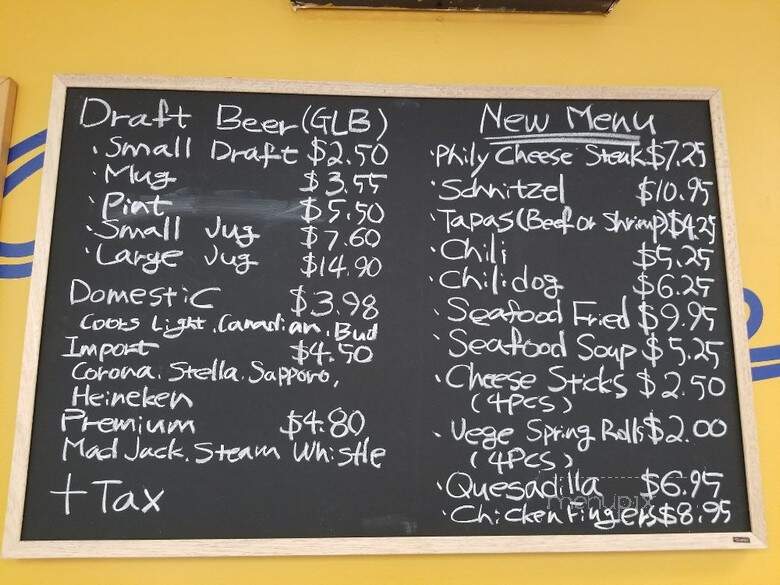 Draft Beer (GLB)
· Small Draft $2.50
· Mug $3.55
· Pint $5.50
· Small Jug $7.60
· Large Jug $14.90
Domestic $3.98
Coors Light, Canadian, Bud
Import $4.50
Corona, Stella, Sapporo,
Heineken
Premium $4.80
Mad Jack, Steam Whistle
+ Tax
New Menu
· Phily Cheese Steak $7.25
· Schnitzel $10.95
· Tapas (Beef or Shrimp) $4.25
· Chili $5.25
· Chili dog $6.25
· Seafood Fried $9.95
· Seafood Soup $5.25
· Cheese Sticks $2.50
(4PCS)
· Vege Spring Rolls $2.00
(4PCS)
· Quesadilla $6.95
menupix
· Chicken Fingers $8.95